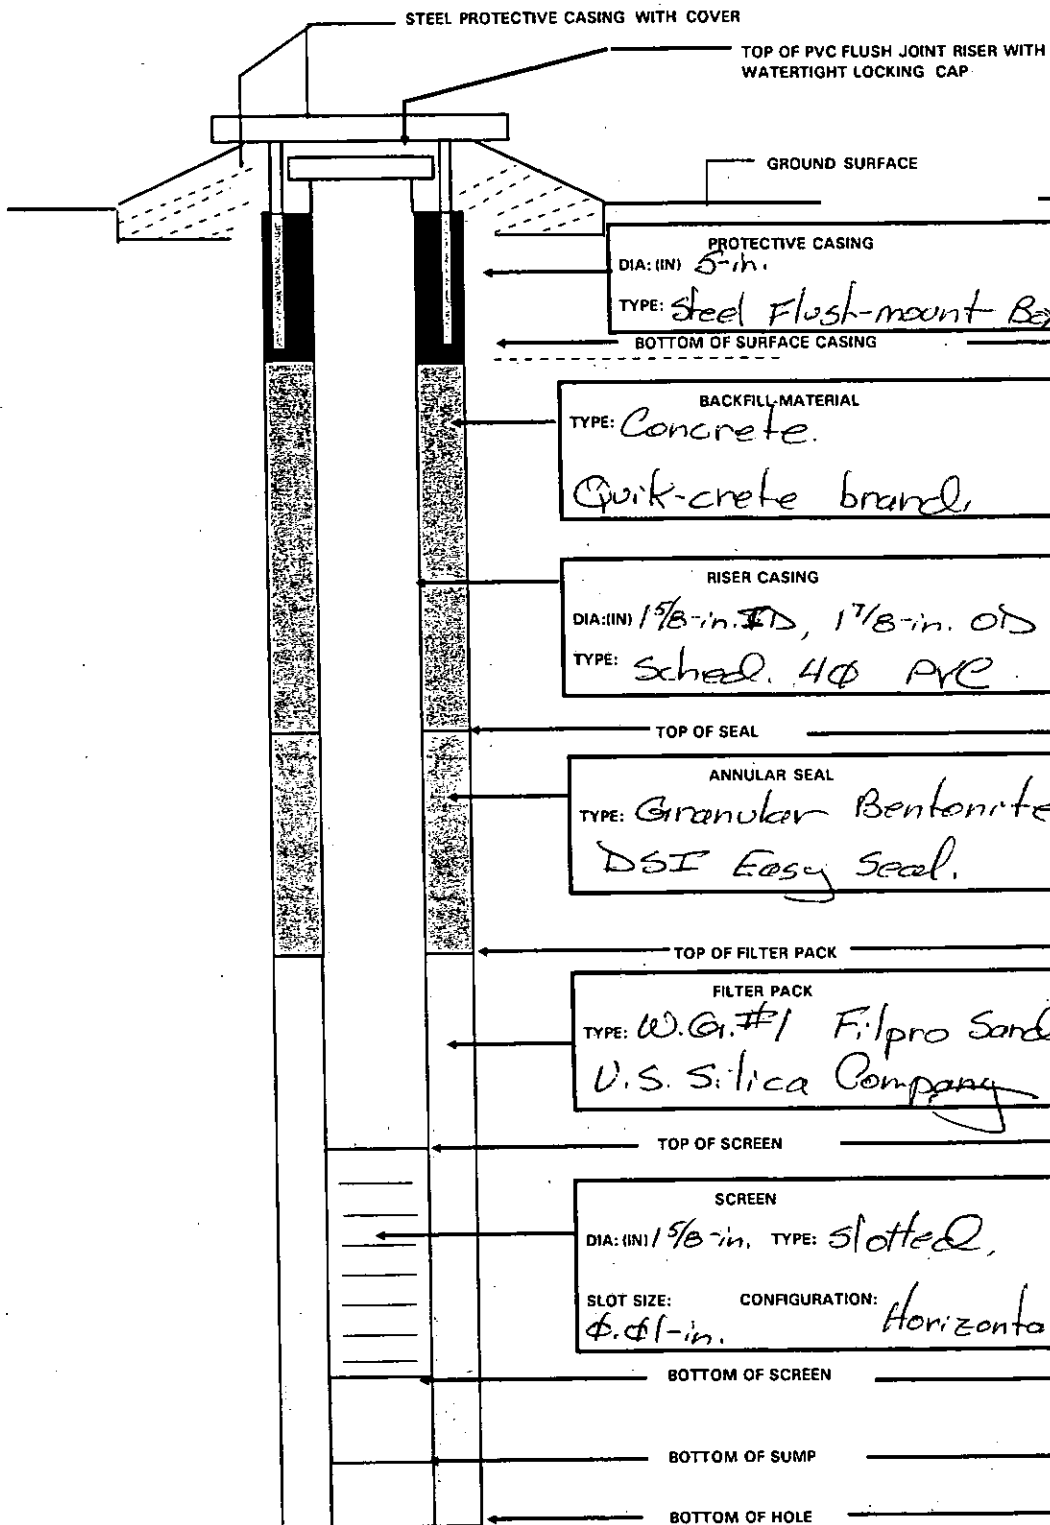 STEEL PROTECTIVE CASING WITH COVER
TOP OF PVC FLUSH JOINT RISER WITH
WATERTIGHT LOCKING CAP
GROUND SURFACE
PROTECTIVE CASING
DIA: (IN) 5-in.
TYPE: Steel Flush-mount Box
BOTTOM OF SURFACE CASING
BACKFILL MATERIAL
TYPE: Concrete.
Quik-crete brand.
RISER CASING
DIA:(IN) 1 5/8-in. ID, 1 7/8-in. OD
TYPE: Sched. 40 PVC
TOP OF SEAL
ANNULAR SEAL
TYPE: Granular Bentonite
DSI Easy Seal.
TOP OF FILTER PACK
FILTER PACK
TYPE: W.G. #1 Filpro Sand
U.S. Silica Company
TOP OF SCREEN
SCREEN
DIA: (IN) 1 5/8-in. TYPE: Slotted,
SLOT SIZE: CONFIGURATION:
0.01-in. Horizonta
BOTTOM OF SCREEN
BOTTOM OF SUMP
BOTTOM OF HOLE